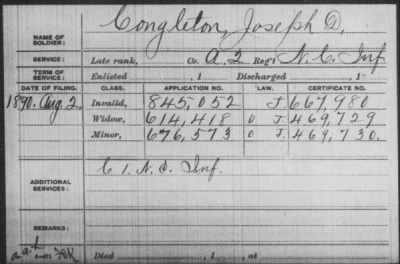 Congleton, Joseph D.
NAME OF SOLDIER:
SERVICE: Late rank, Co. A, 2 Reg't N. C. Inf.
TERM OF SERVICE: Enlisted , 1 Discharged , 1
DATE OF FILING. CLASS. APPLICATION NO. LAW. CERTIFICATE NO.
1890. Aug. 2. Invalid, 845,052 J. 667,980
Widow, 614,418 O J. 469,729
Minor, 676,573 O J. 469,730.
C 1. N. C. Inf.
ADDITIONAL SERVICES:
REMARKS:
Died , 1 , at